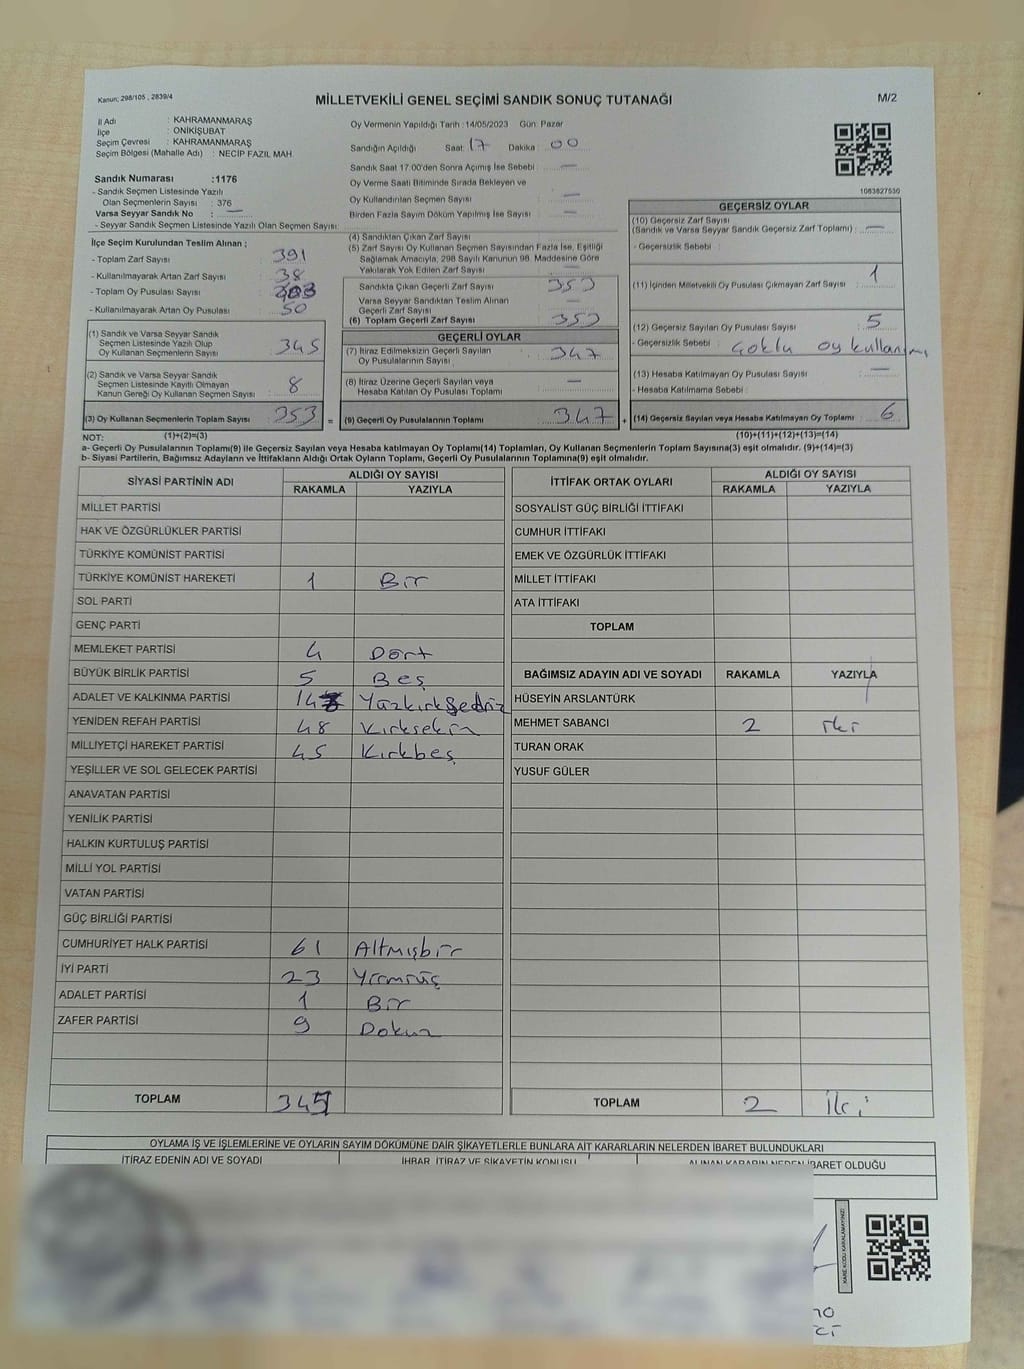 Kanun; 298/105 , 2839/4
MİLLETVEKİLİ GENEL SEÇİMİ SANDIK SONUÇ TUTANAĞI
M/2
İl Adı : KAHRAMANMARAŞ
İlçe : ONİKİŞUBAT
Seçim Çevresi : KAHRAMANMARAŞ
Seçim Bölgesi (Mahalle Adı) : NECİP FAZIL MAH.
Sandık Numarası :1176
- Sandık Seçmen Listesinde Yazılı
Olan Seçmenlerin Sayısı : 376
Varsa Seyyar Sandık No : —
- Seyyar Sandık Seçmen Listesinde Yazılı Olan Seçmen Sayısı:
İlçe Seçim Kurulundan Teslim Alınan ;
- Toplam Zarf Sayısı : 391
- Kullanılmayarak Artan Zarf Sayısı : 38
- Toplam Oy Pusulası Sayısı :
- Kullanılmayarak Artan Oy Pusulası : 50
(1) Sandık ve Varsa Seyyar Sandık
Seçmen Listesinde Yazılı Olup
Oy Kullanan Seçmenlerin Sayısı : 345
(2) Sandık ve Varsa Seyyar Sandık
Seçmen Listesinde Kayıtlı Olmayan
Kanun Gereği Oy Kullanan Seçmen Sayısı : 8
(3) Oy Kullanan Seçmenlerin Toplam Sayısı : 353 =
Oy Vermenin Yapıldığı Tarih :14/05/2023 Gün: Pazar
Sandığın Açıldığı Saat: 17 Dakika : 00
Sandık Saat 17:00'den Sonra Açımış İse Sebebi : —
Oy Verme Saati Bitiminde Sırada Bekleyen ve
Oy Kullandırılan Seçmen Sayısı : —
Birden Fazla Sayım Döküm Yapılmış İse Sayısı : —
(4) Sandıktan Çıkan Zarf Sayısı
(5) Zarf Sayısı Oy Kullanan Seçmen Sayısından Fazla İse, Eşitliği
Sağlamak Amacıyla, 298 Sayılı Kanunun 98. Maddesine Göre
Yakılarak Yok Edilen Zarf Sayısı : —
Sandıkta Çıkan Geçerli Zarf Sayısı : 353
Varsa Seyyar Sandıktan Teslim Alınan
Geçerli Zarf Sayısı : —
(6) Toplam Geçerli Zarf Sayısı : 353
GEÇERLİ OYLAR
(7) İtiraz Edilmeksizin Geçerli Sayılan
Oy Pusulalarının Sayısı : 347
(8) İtiraz Üzerine Geçerli Sayılan veya
Hesaba Katılan Oy Pusulası Toplamı : —
(9) Geçerli Oy Pusulalarının Toplamı : 347 +
1083827530
GEÇERSİZ OYLAR
(10) Geçersiz Zarf Sayısı
(Sandık ve Varsa Seyyar Sandık Geçersiz Zarf Toplamı) : —
- Geçersizlik Sebebi :
(11) İçinden Milletvekili Oy Pusulası Çıkmayan Zarf Sayısı : 1
(12) Geçersiz Sayılan Oy Pusulası Sayısı : 5
- Geçersizlik Sebebi : Çoklu oy kullanımı
(13) Hesaba Katılmayan Oy Pusulası Sayısı : —
- Hesaba Katılmama Sebebi :
(14) Geçersiz Sayılan veya Hesaba Katılmayan Oy Toplamı : 6
NOT: (1)+(2)=(3) (10)+(11)+(12)+(13)=(14)
a- Geçerli Oy Pusulalarının Toplamı(9) ile Geçersiz Sayılan veya Hesaba katılmayan Oy Toplamı(14) Toplamları, Oy Kullanan Seçmenlerin Toplam Sayısına(3) eşit olmalıdır. (9)+(14)=(3)
b- Siyasi Partilerin, Bağımsız Adayların ve İttifakların Aldığı Ortak Oyların Toplamı, Geçerli Oy Pusulalarının Toplamına(9) eşit olmalıdır.
SİYASİ PARTİNİN ADI ALDIĞI OY SAYISI
RAKAMLA YAZIYLA
MİLLET PARTİSİ
HAK VE ÖZGÜRLÜKLER PARTİSİ
TÜRKİYE KOMÜNİST PARTİSİ
TÜRKİYE KOMÜNİST HAREKETİ 1 Bir
SOL PARTİ
GENÇ PARTİ
MEMLEKET PARTİSİ 4 Dört
BÜYÜK BİRLİK PARTİSİ 5 Beş
ADALET VE KALKINMA PARTİSİ Yüzkırksekiz
YENİDEN REFAH PARTİSİ 48 Kırksekiz
MİLLİYETÇİ HAREKET PARTİSİ 45 Kırkbeş
YEŞİLLER VE SOL GELECEK PARTİSİ
ANAVATAN PARTİSİ
YENİLİK PARTİSİ
HALKIN KURTULUŞ PARTİSİ
MİLLİ YOL PARTİSİ
VATAN PARTİSİ
GÜÇ BİRLİĞİ PARTİSİ
CUMHURİYET HALK PARTİSİ 61 Altmışbir
İYİ PARTİ 23 Yirmiüç
ADALET PARTİSİ 1 Bir
ZAFER PARTİSİ 9 Dokuz
TOPLAM 345
İTTİFAK ORTAK OYLARI ALDIĞI OY SAYISI
RAKAMLA YAZIYLA
SOSYALİST GÜÇ BİRLİĞİ İTTİFAKI
CUMHUR İTTİFAKI
EMEK VE ÖZGÜRLÜK İTTİFAKI
MİLLET İTTİFAKI
ATA İTTİFAKI
TOPLAM
BAĞIMSIZ ADAYIN ADI VE SOYADI RAKAMLA YAZIYLA
HÜSEYİN ARSLANTÜRK
MEHMET SABANCI 2 iki
TURAN ORAK
YUSUF GÜLER
TOPLAM 2 İki
OYLAMA İŞ VE İŞLEMLERİNE VE OYLARIN SAYIM DÖKÜMÜNE DAİR ŞİKAYETLERLE BUNLARA AİT KARARLARIN NELERDEN İBARET BULUNDUKLARI
İTİRAZ EDENİN ADI VE SOYADI İHBAR, İTİRAZ VE ŞİKAYETİN KONUSU ALINAN KARARIN NEDEN İBARET OLDUĞU
KARE KODU KARALAMAYINIZ!